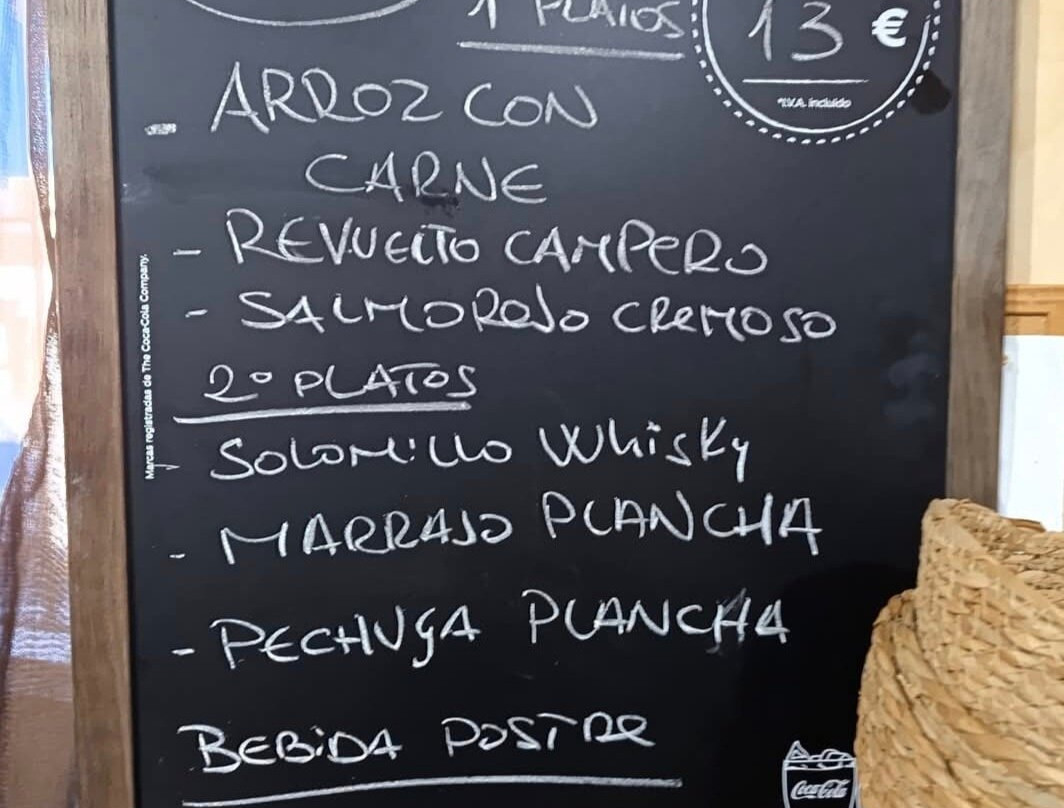 1 PLATOS
13 €
*I.V.A. incluido
- ARROZ CON
CARNE
- REVUELTO CAMPERO
- SALMOREJO CREMOSO
2º PLATOS
- SOLOMILLO WHISKY
- MARRAJO PLANCHA
- PECHUGA PLANCHA
BEBIDA POSTRE
Marcas registradas de The Coca-Cola Company.
Coca-Cola